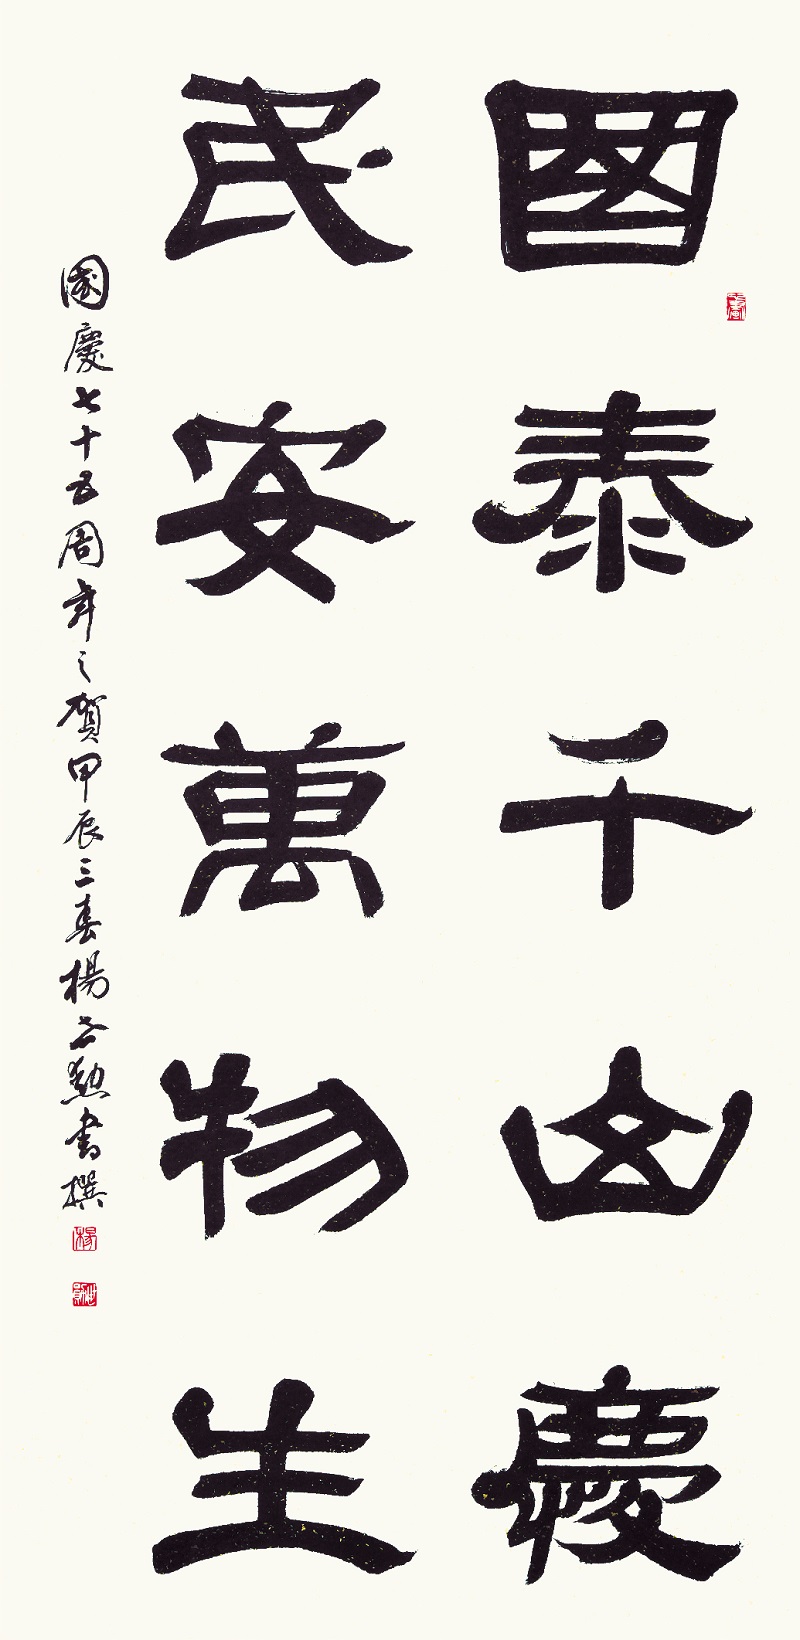 國泰千山慶
民安萬物生
國慶七十五周年之賀甲辰三春楊世勲書撰
楊